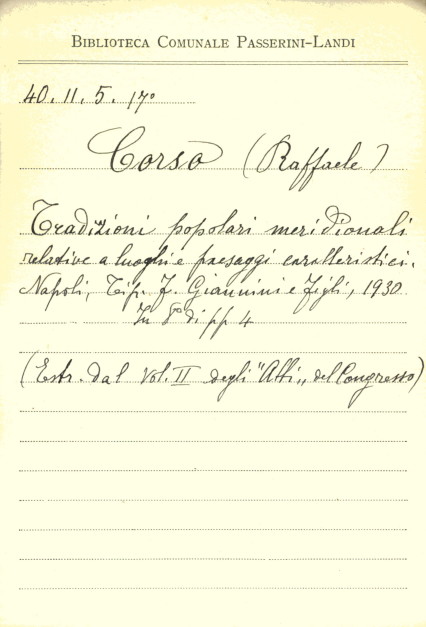 BIBLIOTECA COMUNALE PASSERINI-LANDI
40. II. 5. 17º
Corso (Raffaele)
Tradizioni popolari meridionali
relative a luoghi e paesaggi caratteristici.
Napoli, Tip. F. Giannini e Figli, 1930
In 8º di pp 4
(Estr. dal vol. II degli "Atti" del Congresso)